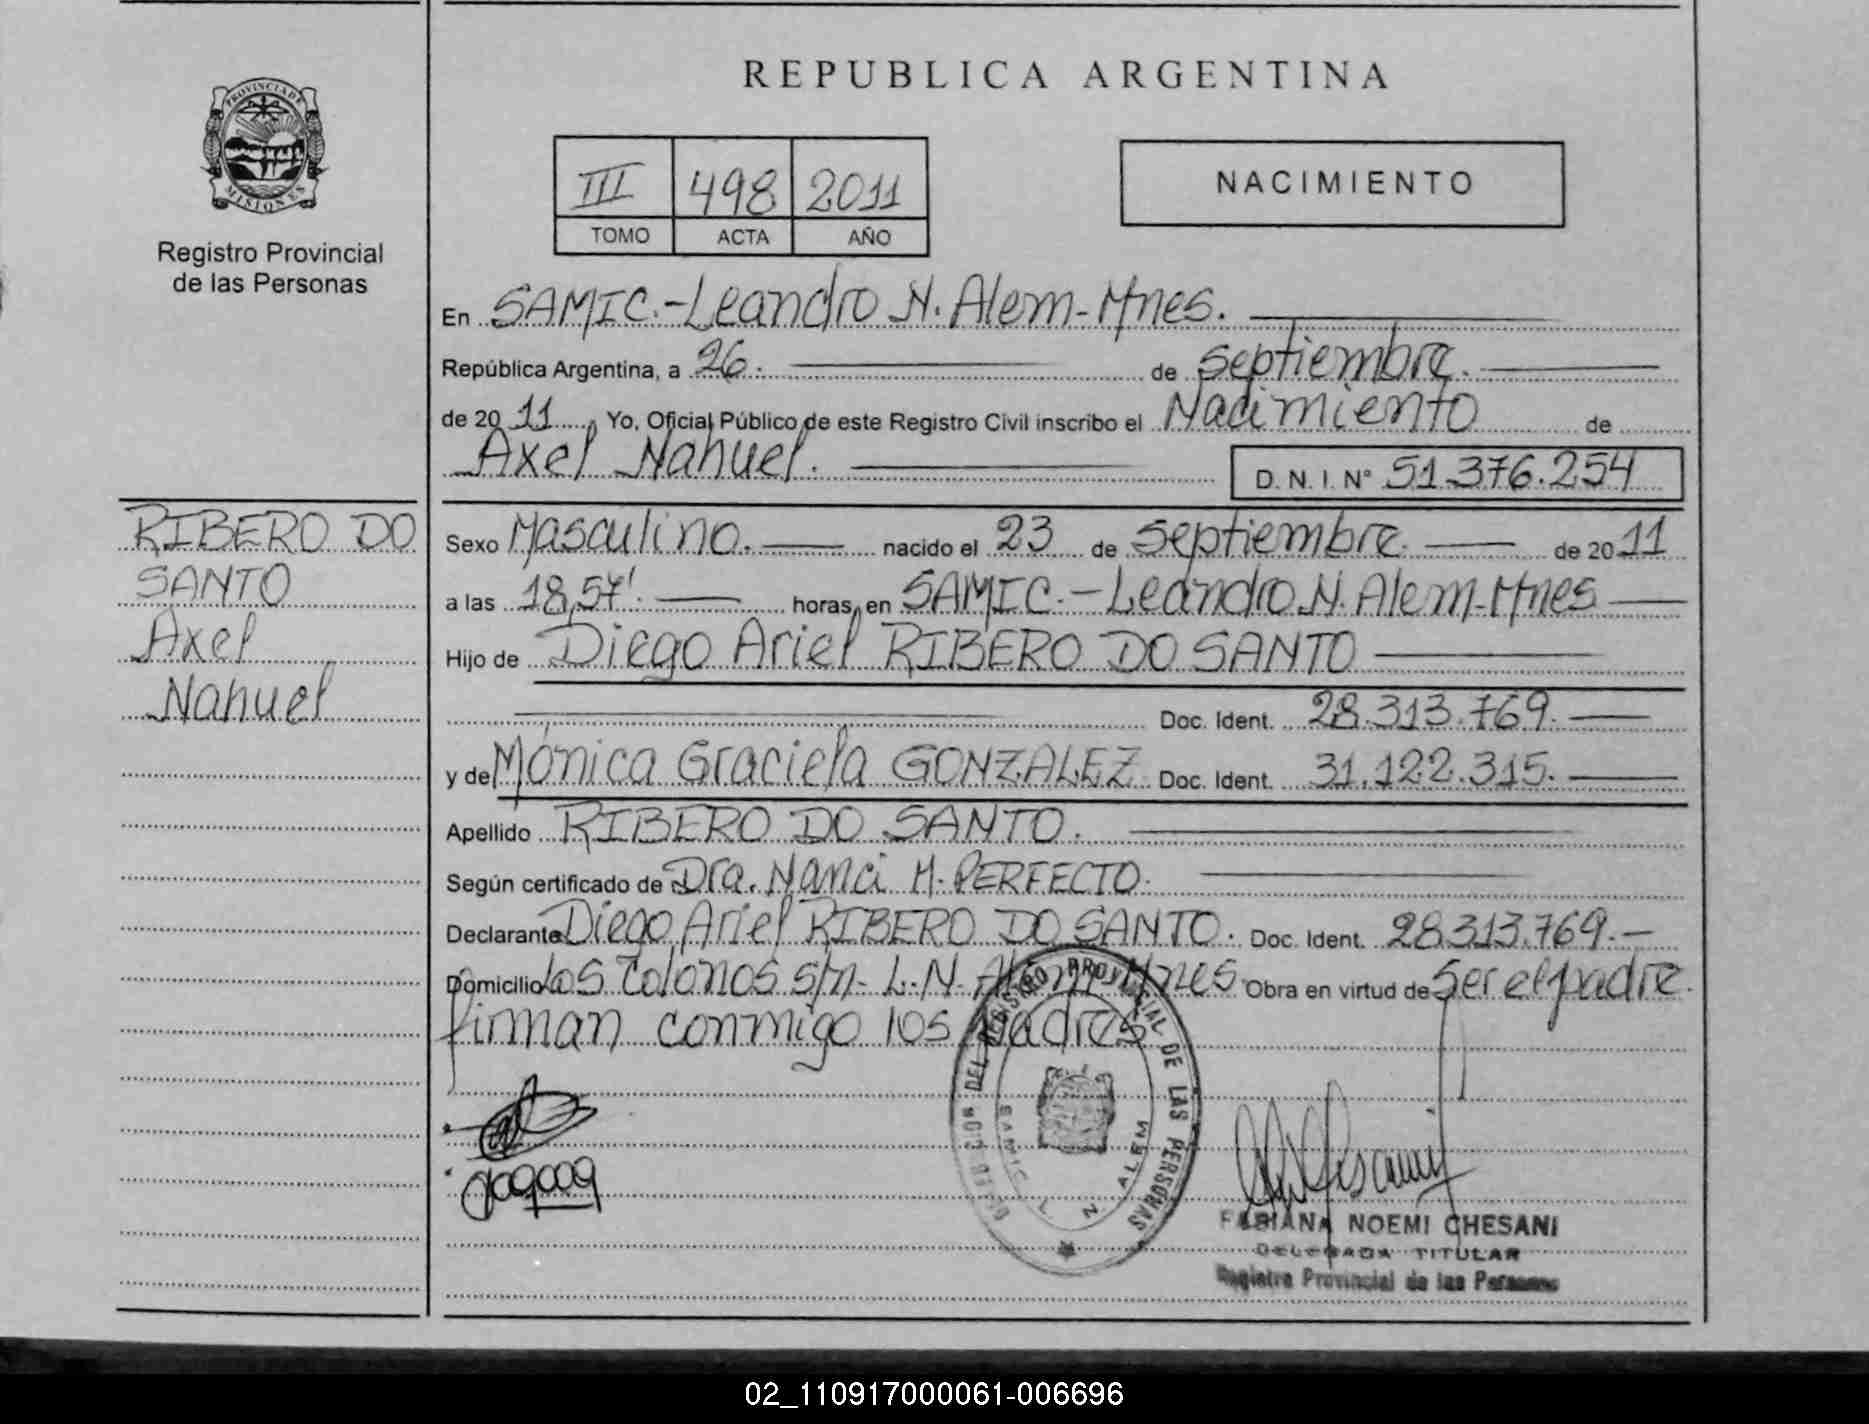 REPUBLICA ARGENTINA
PROVINCIA DE
MISIONES
Registro Provincial
de las Personas
III 498 2011
TOMO ACTA AÑO
NACIMIENTO
En SAMIC.-Leandro N. Alem-Mnes.
República Argentina, a 26. de septiembre.
de 20 11 Yo, Oficial Público de este Registro Civil inscribo el Nacimiento de
Axel Nahuel.
D. N. I. Nº 51.376.254
RIBERO DO
SANTO
Axel
Nahuel
Sexo Masculino. nacido el 23 de septiembre. de 20 11
a las 18,57'. horas, en SAMIC.-Leandro N. Alem-Mnes
Hijo de Diego Ariel RIBERO DO SANTO
Doc. Ident. 28.313.769.
y de Mónica Graciela GONZALEZ Doc. Ident. 31.122.315.
Apellido RIBERO DO SANTO.
Según certificado de Dra. Nanci M. PERFECTO.
Declarante Diego Ariel RIBERO DO SANTO. Doc. Ident. 28.313.769.-
Domicilio Los Colonos s/n- L.N. Alem-Mnes Obra en virtud de Ser el padre.
firman conmigo los padres
DEL REGISTRO PROVINCIAL DE LAS PERSONAS
SAMIC L. N. ALEM
FABIANA NOEMI CHESANI
DELEGADA TITULAR
Registro Provincial de las Personas
02_110917000061-006696